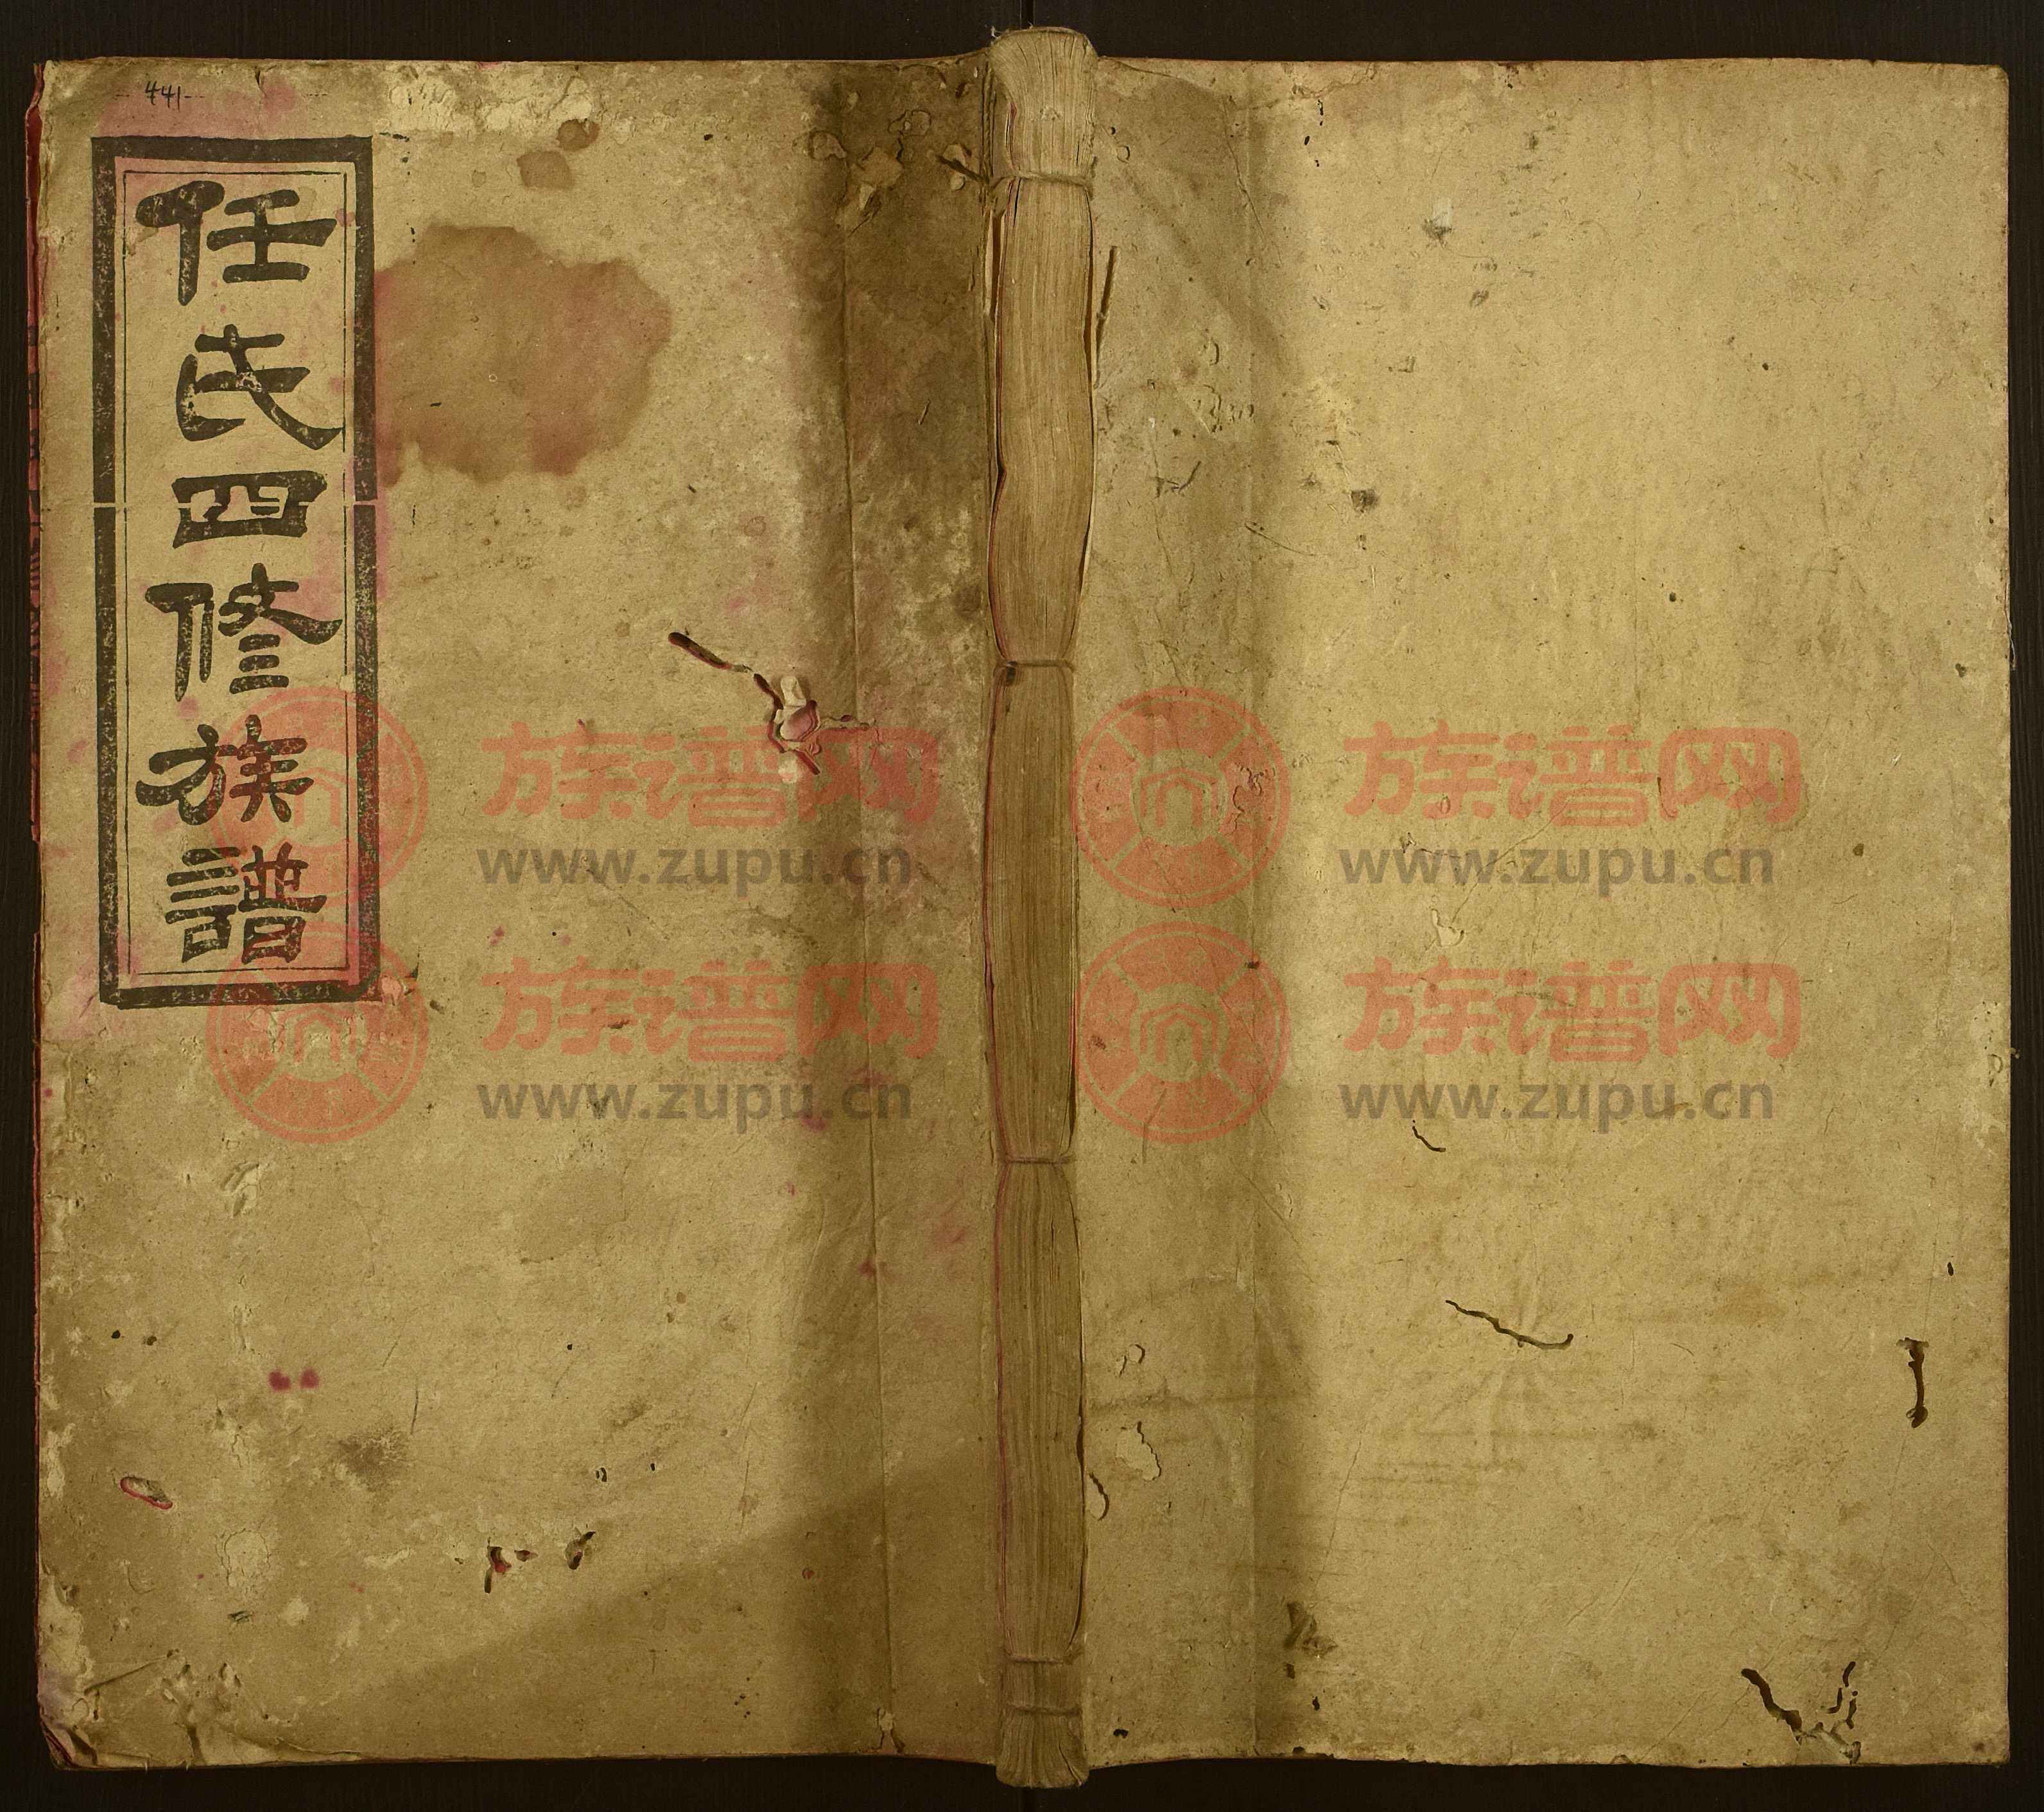 441
任氏四修族譜
族谱网
www.zupu.cn
族谱网
www.zupu.cn
族谱网
www.zupu.cn
族谱网
www.zupu.cn